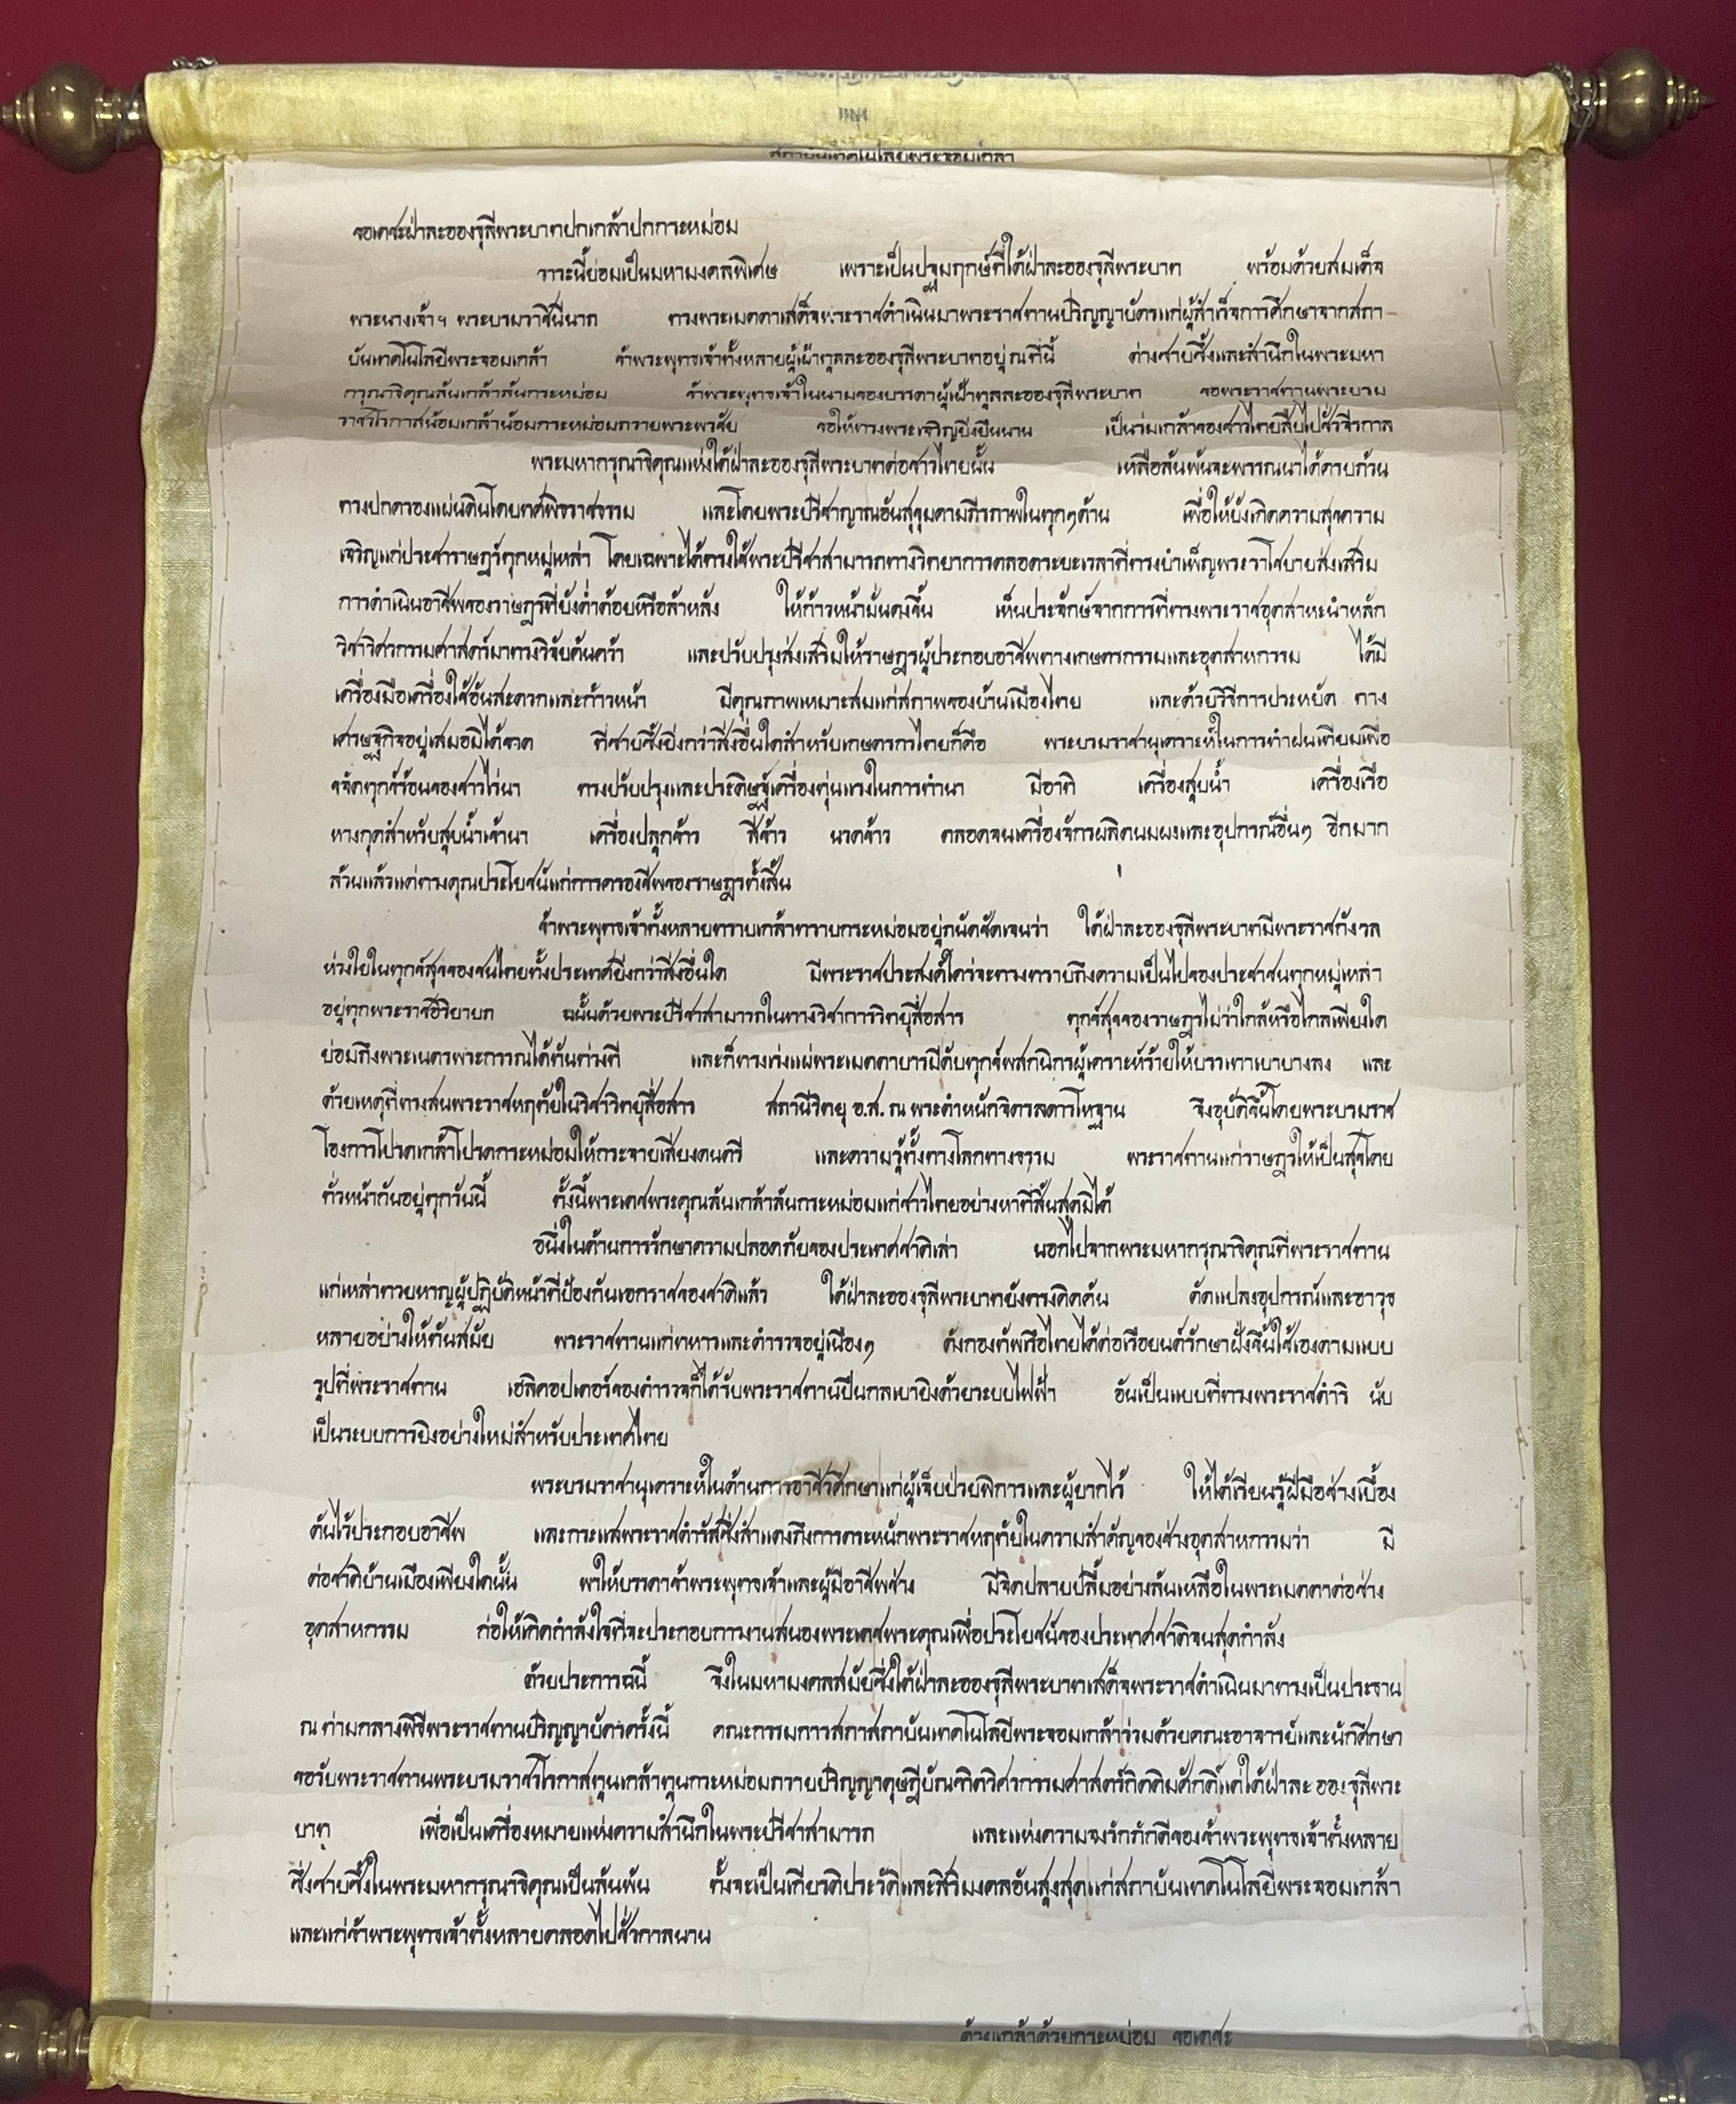 แห่ง
สถาบันเทคโนโลยีพระจอมเกล้า
ขอเดชะฝ่าละอองธุลีพระบาทปกเกล้าปกกระหม่อม
วาระนี้ย่อมเป็นมหามงคลพิเศษ เพราะเป็นปฐมฤกษ์ที่ใต้ฝ่าละอองธุลีพระบาท พร้อมด้วยสมเด็จ
พระนางเจ้าฯ พระบรมราชินีนาถ ทรงพระเมตตาเสด็จพระราชดำเนินมาพระราชทานปริญญาบัตรแก่ผู้สำเร็จการศึกษาจากสถา-
บันเทคโนโลยีพระจอมเกล้า ข้าพระพุทธเจ้าทั้งหลายผู้เฝ้าทูลละอองธุลีพระบาทอยู่ ณ ที่นี้ ต่างซาบซึ้งและสำนึกในพระมหา
กรุณาธิคุณล้นเกล้าล้นกระหม่อม ข้าพระพุทธเจ้าในนามของบรรดาผู้เฝ้าทูลละอองธุลีพระบาท ขอพระราชทานพระบรม
ราชวโรกาสน้อมเกล้าน้อมกระหม่อมถวายพระพรชัย ขอให้ทรงพระเจริญยิ่งยืนนาน เป็นร่มเกล้าของชาวไทยสืบไปชั่วจีรกาล
พระมหากรุณาธิคุณแห่งใต้ฝ่าละอองธุลีพระบาทต่อชาวไทยนั้น เหลือล้นพ้นจะพรรณนาได้ครบถ้วน
ทรงปกครองแผ่นดินโดยทศพิธราชธรรม และโดยพระปรีชาญาณอันสุขุมคามภีรภาพในทุกๆด้าน เพื่อให้บังเกิดความสุขความ
เจริญแก่ประชาราษฎร์ทุกหมู่เหล่า โดยเฉพาะได้ทรงใช้พระปรีชาสามารถทางวิทยาการตลอดระยะเวลาที่ทรงบำเพ็ญพระราโชบายส่งเสริม
การดำเนินอาชีพของราษฎรที่ยังต่ำต้อยหรือล้าหลัง ให้ก้าวหน้ามั่นคงขึ้น เห็นประจักษ์จากการที่ทรงพระราชอุตสาหะนำหลัก
วิชาวิศวกรรมศาสตร์มาทรงวิจัยค้นคว้า และปรับปรุงส่งเสริมให้ราษฎรผู้ประกอบอาชีพทางเกษตรกรรมและอุตสาหกรรม ได้มี
เครื่องมือเครื่องใช้อันสะดวกและก้าวหน้า มีคุณภาพเหมาะสมแก่สภาพของบ้านเมืองไทย และด้วยวิธีการประหยัด ทาง
เศรษฐกิจอยู่เสมอมิได้ขาด ที่ซาบซึ้งยิ่งกว่าสิ่งอื่นใดสำหรับเกษตรกรไทยก็คือ พระบรมราชานุเคราะห์ในการทำฝนเทียมเพื่อ
ขจัดทุกข์ร้อนของชาวไร่นา ทรงปรับปรุงและประดิษฐ์เครื่องทุ่นแรงในการทำนา มีอาทิ เครื่องสูบน้ำ เครื่องเรือ
หางกุดสำหรับสูบน้ำเข้านา เครื่องปลูกข้าว สีข้าว นวดข้าว ตลอดจนเครื่องจักรผลิตนมผงและอุปกรณ์อื่นๆ อีกมาก
ล้วนแล้วแต่ทรงคุณประโยชน์แก่การครองชีพของราษฎรทั้งสิ้น
ข้าพระพุทธเจ้าทั้งหลายทราบเกล้าทราบกระหม่อมอยู่ถนัดชัดเจนว่า ใต้ฝ่าละอองธุลีพระบาทมีพระราชกังวล
ห่วงใยในทุกข์สุขของชนไทยทั้งประเทศยิ่งกว่าสิ่งอื่นใด มีพระราชประสงค์ใคร่จะทรงทราบถึงความเป็นไปของประชาชนทุกหมู่เหล่า
อยู่ทุกพระราชอิริยาบถ ฉนั้นด้วยพระปรีชาสามารถในทางวิชาการวิทยุสื่อสาร ทุกข์สุขของราษฎรไม่ว่าใกล้หรือไกลเพียงใด
ย่อมถึงพระเนตรพระกรรณได้ทันท่วงที และก็ทรงเร่งแผ่พระเมตตาบารมีดับทุกข์พสกนิกรผู้เคราะห์ร้ายให้บรรเทาเบาบางลง และ
ด้วยเหตุที่ทรงสนพระราชหฤทัยในวิชาวิทยุสื่อสาร สถานีวิทยุ อ.ส. ณ พระตำหนักจิตรลดารโหฐาน จึงอุบัติขึ้นโดยพระบรมราช
โองการโปรดเกล้าโปรดกระหม่อมให้กระจายเสียงดนตรี และความรู้ทั้งทางโลกทางธรรม พระราชทานแก่ราษฎรให้เป็นสุขโดย
ทั่วหน้ากันอยู่ทุกวันนี้ ทั้งนี้พระเดชพระคุณล้นเกล้าล้นกระหม่อมแก่ชาวไทยอย่างหาที่สิ้นสุดมิได้
อนึ่งในด้านการรักษาความปลอดภัยของประเทศชาติเล่า นอกไปจากพระมหากรุณาธิคุณที่พระราชทาน
แก่เหล่าทวยหาญผู้ปฏิบัติหน้าที่ป้องกันเอกราชของชาติแล้ว ใต้ฝ่าละอองธุลีพระบาทยังทรงคิดค้น ดัดแปลงอุปกรณ์และอาวุธ
หลายอย่างให้ทันสมัย พระราชทานแก่ทหารและตำรวจอยู่เนืองๆ ดังกองทัพเรือไทยได้ต่อเรือยนต์รักษาฝั่งขึ้นใช้เองตามแบบ
รูปที่พระราชทาน เฮลิคอปเตอร์ของตำรวจก็ได้รับพระราชทานปืนกลเบายิงด้วยระบบไฟฟ้า อันเป็นแบบที่ทรงพระราชดำริ นับ
เป็นระบบการยิงอย่างใหม่สำหรับประเทศไทย
พระบรมราชานุเคราะห์ในด้านการอาชีวศึกษาแก่ผู้เจ็บป่วยพิการและผู้ยากไร้ ให้ได้เรียนรู้ฝีมือช่างเบื้อง
ต้นไว้ประกอบอาชีพ และกระแสพระราชดำรัสซึ่งสำแดงถึงการตระหนักพระราชหฤทัยในความสำคัญของช่างอุตสาหกรรมว่า มี
ต่อชาติบ้านเมืองเพียงใดนั้น พาให้บรรดาข้าพระพุทธเจ้าและผู้มีอาชีพช่าง มีจิตปลาบปลื้มอย่างล้นเหลือในพระเมตตาต่อช่าง
อุตสาหกรรม ก่อให้เกิดกำลังใจที่จะประกอบการงานสนองพระเดชพระคุณเพื่อประโยชน์ของประเทศชาติจนสุดกำลัง
ด้วยประการฉนี้ จึงในมหามงคลสมัยซึ่งใต้ฝ่าละอองธุลีพระบาทเสด็จพระราชดำเนินมาทรงเป็นประธาน
ณ ท่ามกลางพิธีพระราชทานปริญญาบัตรครั้งนี้ คณะกรรมการสภาสถาบันเทคโนโลยีพระจอมเกล้าร่วมด้วยคณะอาจารย์และนักศึกษา
ขอรับพระราชทานพระบรมราชวโรกาสทูนเกล้าทูนกระหม่อมถวายปริญญาดุษฎีบัณฑิตวิศวกรรมศาสตร์กิตติมศักดิ์แด่ใต้ฝ่าละอองธุลีพระ
บาท เพื่อเป็นเครื่องหมายแห่งความสำนึกในพระปรีชาสามารถ และแห่งความจงรักภักดีของข้าพระพุทธเจ้าทั้งหลาย
ซึ่งซาบซึ้งในพระมหากรุณาธิคุณเป็นล้นพ้น ทั้งจะเป็นเกียรติประวัติและสิริมงคลอันสูงสุดแก่สถาบันเทคโนโลยีพระจอมเกล้า
และแก่ข้าพระพุทธเจ้าทั้งหลายตลอดไปชั่วกาลนาน
ด้วยเกล้าด้วยกระหม่อม ขอเดชะ